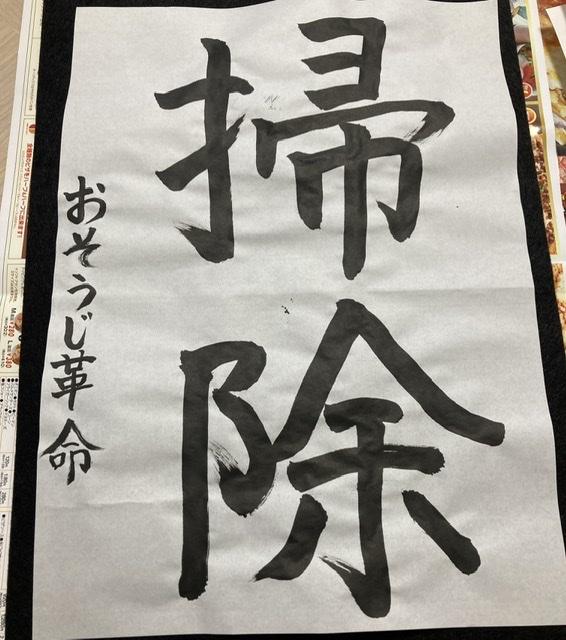 掃除
おそうじ革命